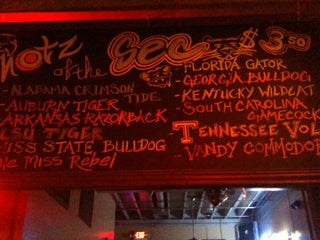 hotz of the SEC $3.50
- ALABAMA CRIMSON TIDE
- AUBURN TIGER
ARKANSAS RAZORBACK
LSU TIGER
MISS STATE BULLDOG
Ole MISS REBEL
- FLORIDA GATOR
- GEORGIA BULLDOG
- KENTUCKY WILDCAT
- SOUTH CAROLINA GAMECOCK
TENNESSEE VOL
- VANDY COMMODOR
EXIT